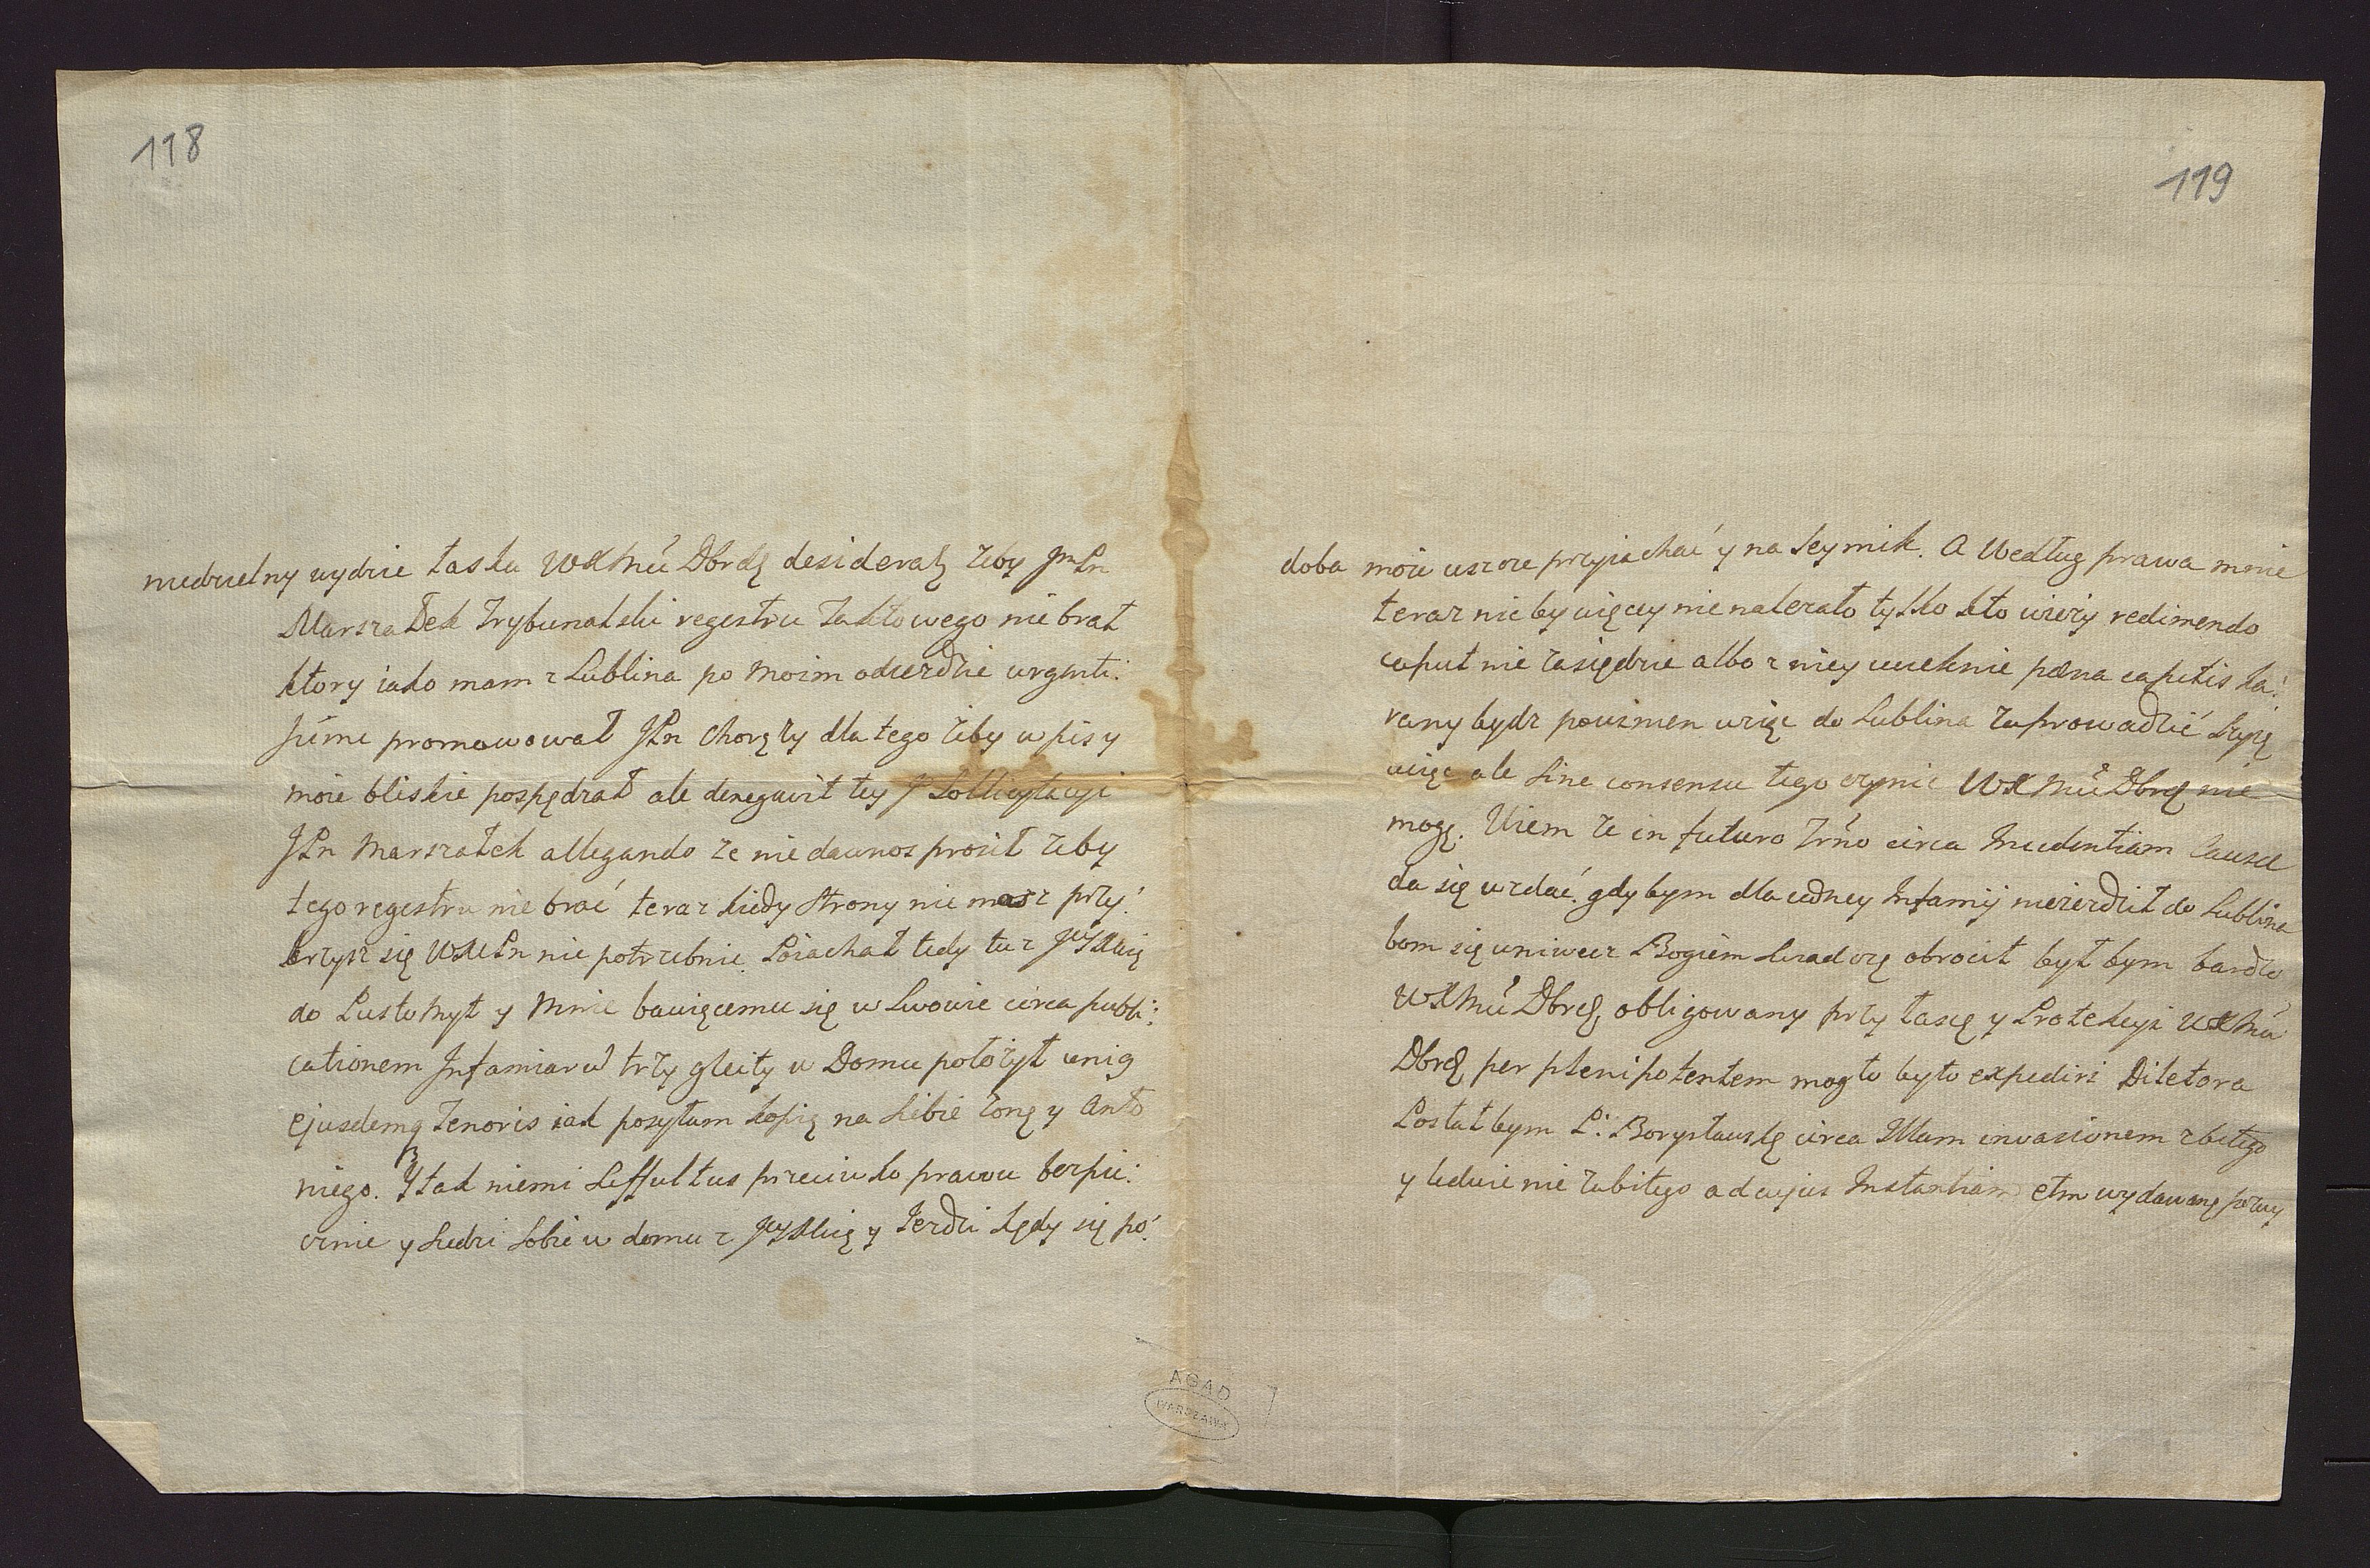 118
niedzielny wydzie łaska WXMci Dbrdz desiderat żeby JmPn
Marszałek Trybunalski regestru Taktowego nie brał
ktory iako mam z Lublina po moim odieździe urgenti:
ssime promowował JPn Chorąży dla tego żeby wpisy
moie bliskie pospędzał ale denegavit tey Sollicytacyi
JPn Marszałek allegando że nie dawnos prosił żeby
tego regestru nie brać teraz kiedy Strony nie masz przy:
krzysz się WMPn nie potrzebnie. Poiachał tedy tu z
do Pustomyt y Mnie bawiącemu się w Lwowie circa publi:
cationem Infamiarum trzy gleity w Domu położył unig
ejusdemq Tenoris iak posyłam kopią na siebie żonę y Anto
niego. Y tak niemi Suffultus przeciwko prawu bezpie:
cznie y siedzi sobie w domu z y Jeździ kędy się po:
AGAD
WARSZAWA
119
doba może wszore przyiachać y na Seymik. A Według prawa mnie
teraz nic by więcey nie należało tylko kto wieży redimendo
caput nie zasiędzie albo z niey ucieknie pœna capitis ka:
rany bydz powinien wziąc do Lublina zaprowadzić
więc ale sine consensu tego czynic WXMci Dbrdz nie
mogę. Wiem że in futuro Trno circa Incidentiam Causæ
da się wzdać. gdy bym dla iedney Infamij nieieździł do Lublina
bom się uniwecz Bogiem Swiadczę obrocił był bym bardzo
WXMci Dbrdz obligowany przy łasce y Protekcyi WXMci
Dbrdz per plenipotentem mogło było expediri Dilatora
Posłał bym P. Borysławskę circa Illam invasionem zbitego
y ledwie nie zabitego ad cujus Instantiam etm wydawane pozwy